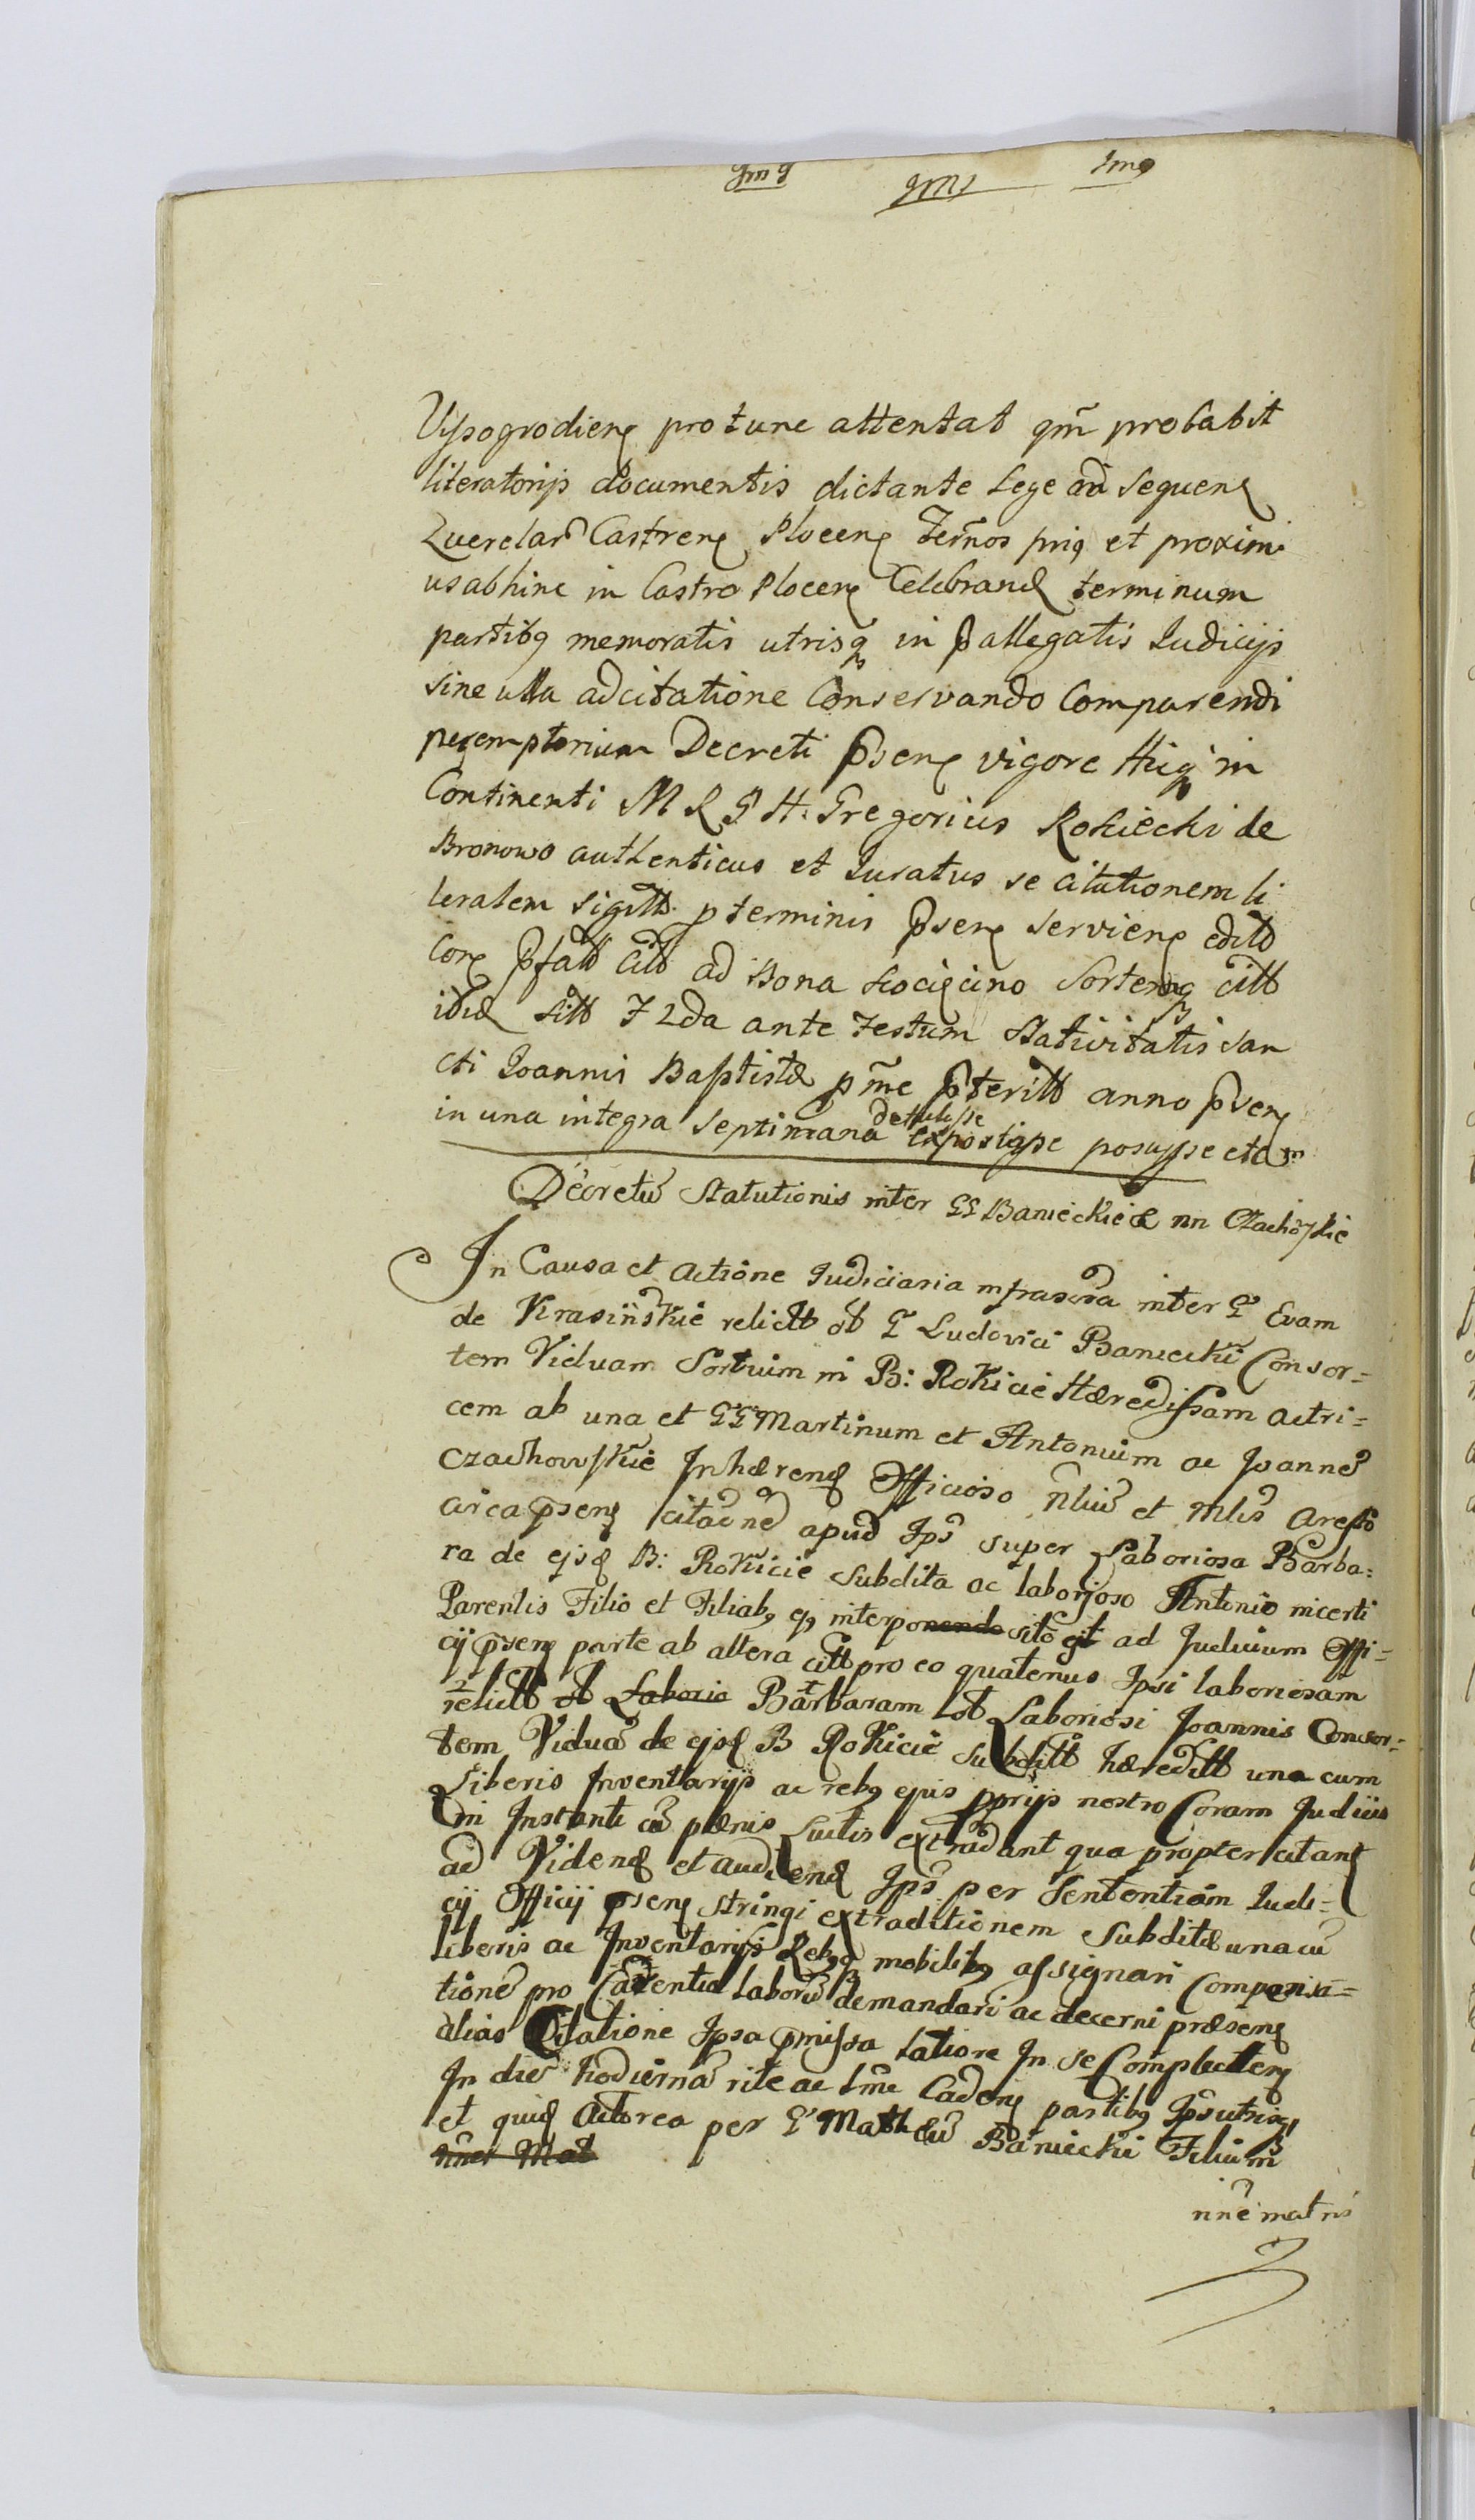 Vyssogrodieng pro tunc attentat qm̃ probabit
literatorijs documentis dictante Lege ad Sequeng
Querelar Castreng Ploceng Terños prig et proxim
us abhinc in Castro Ploceng Celebrand terminum
partibg memoratis utrisq in pallegatis Judicijs
sine ulla adcitatione Conservando Comparendi
peremptorium Decreti pseng vigore Hicq in
Continenti M R G H. Gregorius Rokiecki de
Bronowo authenticus et Juratus se citationem li
teralem sigilt p terminis pseng servieng edito
Corg pfatt citt ad Bona Sortemq citt
ibid sitt F 2da ante Festum Nativitatis San
cti Joannis Baptistæ pm̃e pteritt anno pseng
in una integra Septimana detulisse exposuisse posuisse etc
Decretũ Statutionis inter GG Banieckie & nn Czachowskie
In Causa et Actione Judiciaria infrascra inter G Evam
de Krasinskie relictt ol G Ludovici Baniecki Consor=
tem Viduam Sortium in B: Rokicie Hæredissam actri=
cem ab una et GG Martinum et Antonium ac Joannẽ
Czachowskie Inhæreng Officioso ñlium et mlis Aresto
circa pseng citaõnẽ apud Ips super Laboriosa Barba=
ra de ejsd B: Rokicie Subdita ac laborioso Antonio incerti
Parentis Filio et Filiabg ejg interponendo sito gt ad Judicium Offi=
cij pseng parte ab altera citt pro eo quatenus Ipsi laboriosam
relictt ol Laboria Barbaram ol Laboriosi Joannis Consor=
tem Viduã de ejsd B Rokicie Subditt hæreditt una cum
Liberis Inventarijs ac rebg ejus pprijs nostro Coram Judicio
in Instanti cũ pænis Luctis extradant qua propter citant
ad Vidend et audiend Ips per Sententiam Judi=
cij Officij pseng stringi extraditionem Subditæ una cũ
liberis ac Inventarijs Rebgq mobilibg assignari Compensa=
tionẽ pro Carentia laborũ demandari ac decerni præseng
alias Citatione Ipsa pmissa latiore In se Complecteng
In diẽ hodiernã rite ac lm̃e Cadeng partibg Ips utrisq
et quid Actorea per G Mathæũ Baniecki Filium
nñe Mat
nñe matris